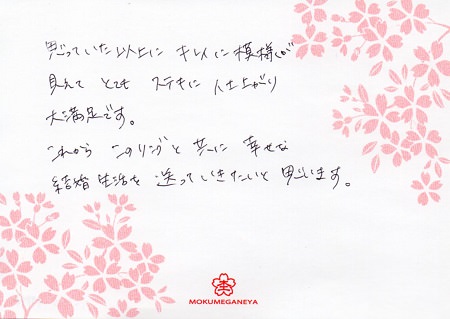 思っていた以上に キレイに 模様が
見えて とても ステキに 仕上がり
大満足です。
これから このリングと 共に 幸せな
結婚生活を 送っていきたいと 思います。
MOKUMEGANEYA